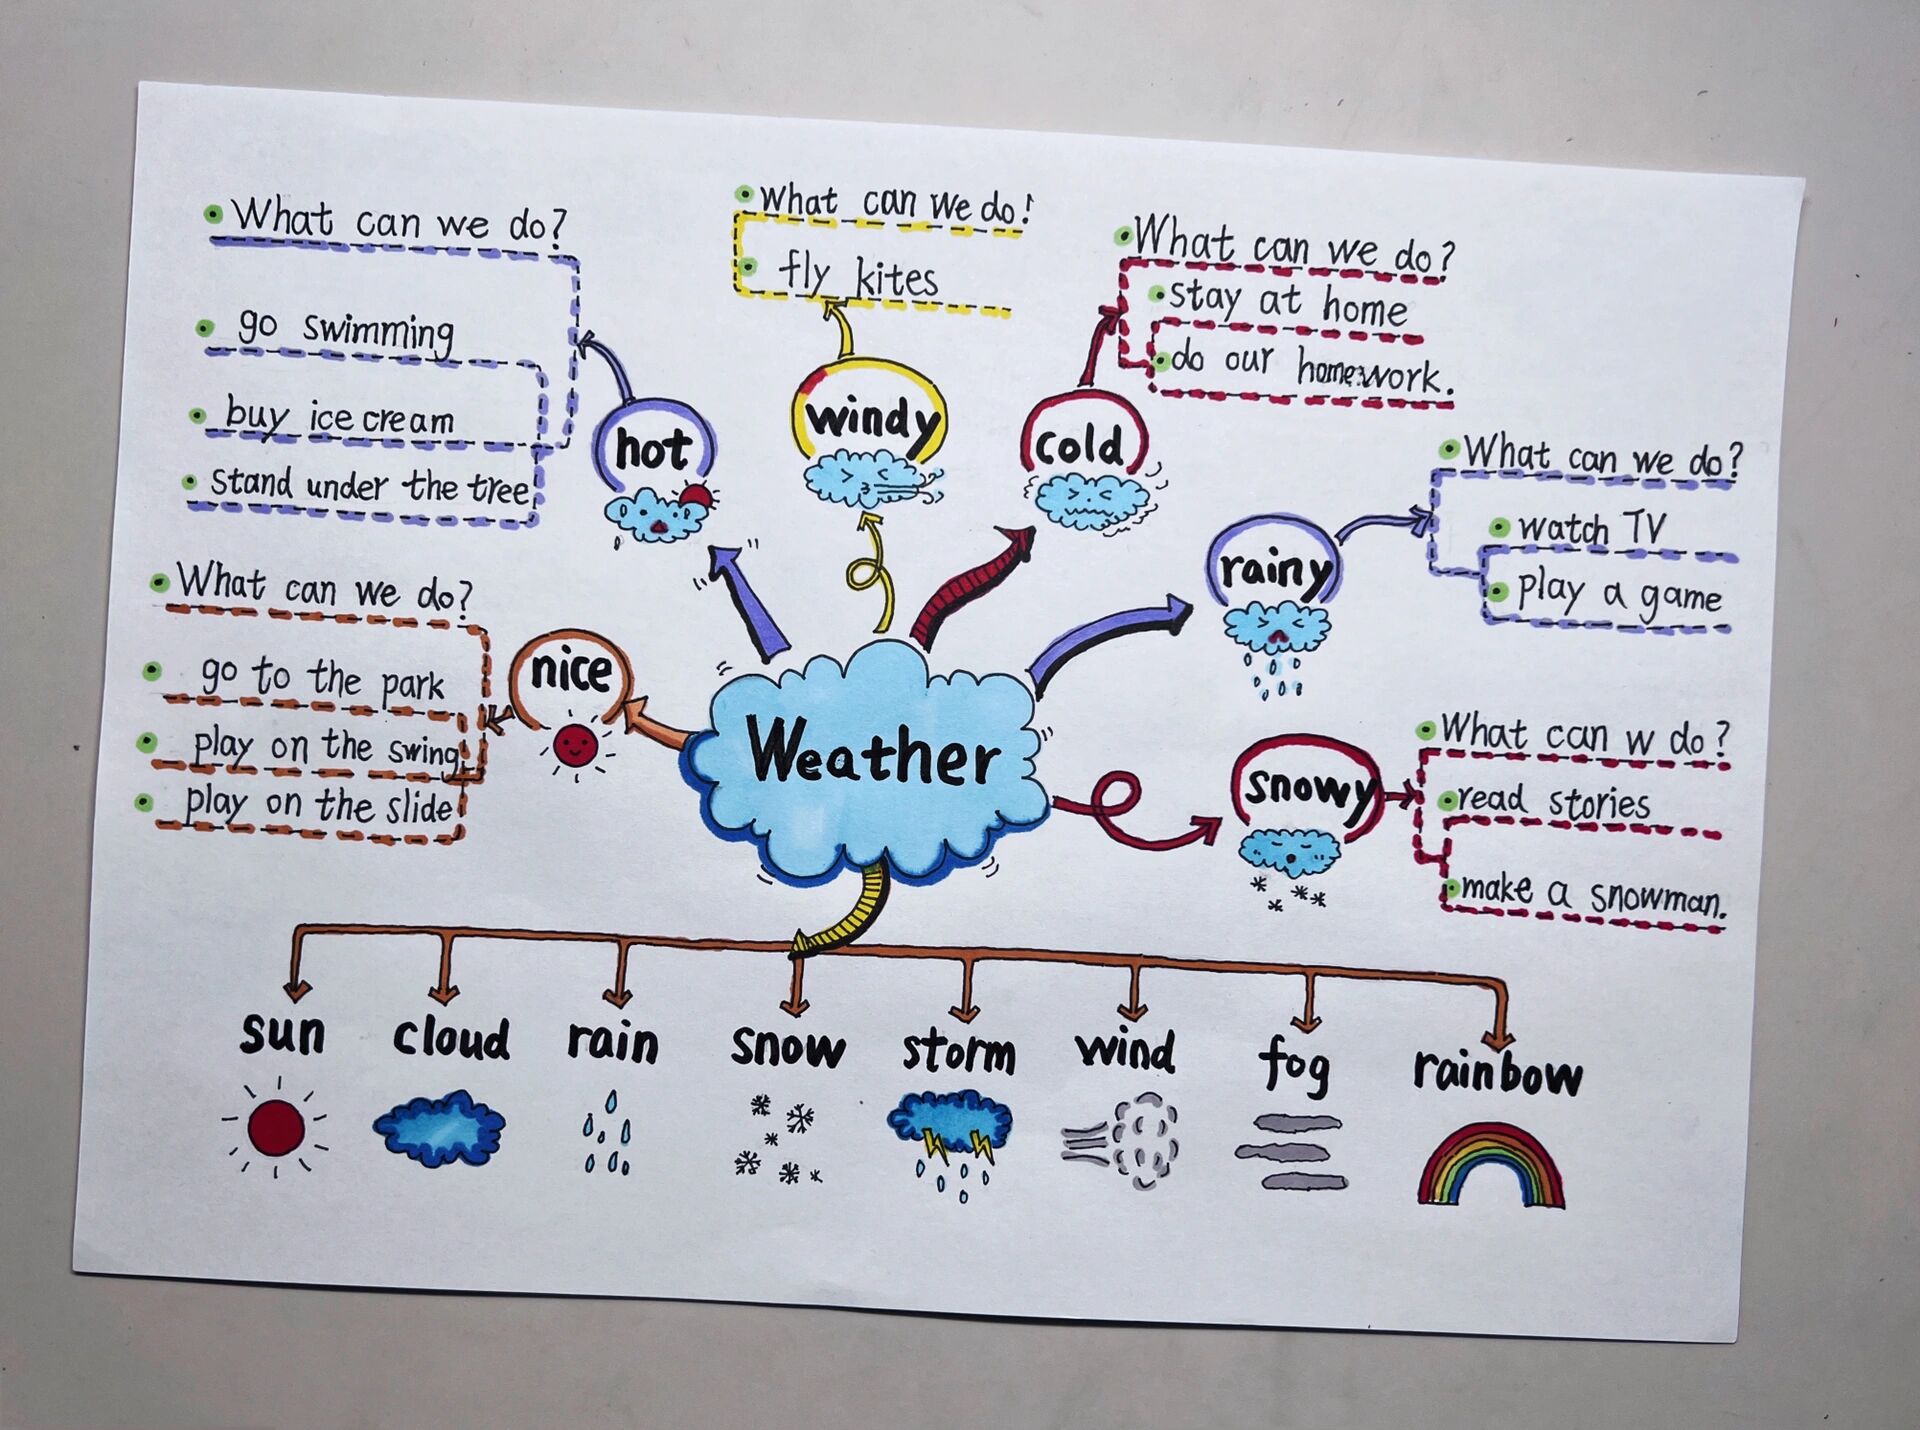 What can we do?
go swimming
buy ice cream
stand under the tree
hot
What can we do!
fly kites
windy
What can we do?
stay at home
do our homework.
cold
What can we do?
watch TV
play a game
rainy
What can we do?
go to the park
play on the swing
play on the slide
nice
Weather
What can w do?
read stories
make a snowman.
snowy
sun
cloud
rain
snow
storm
wind
fog
rainbow